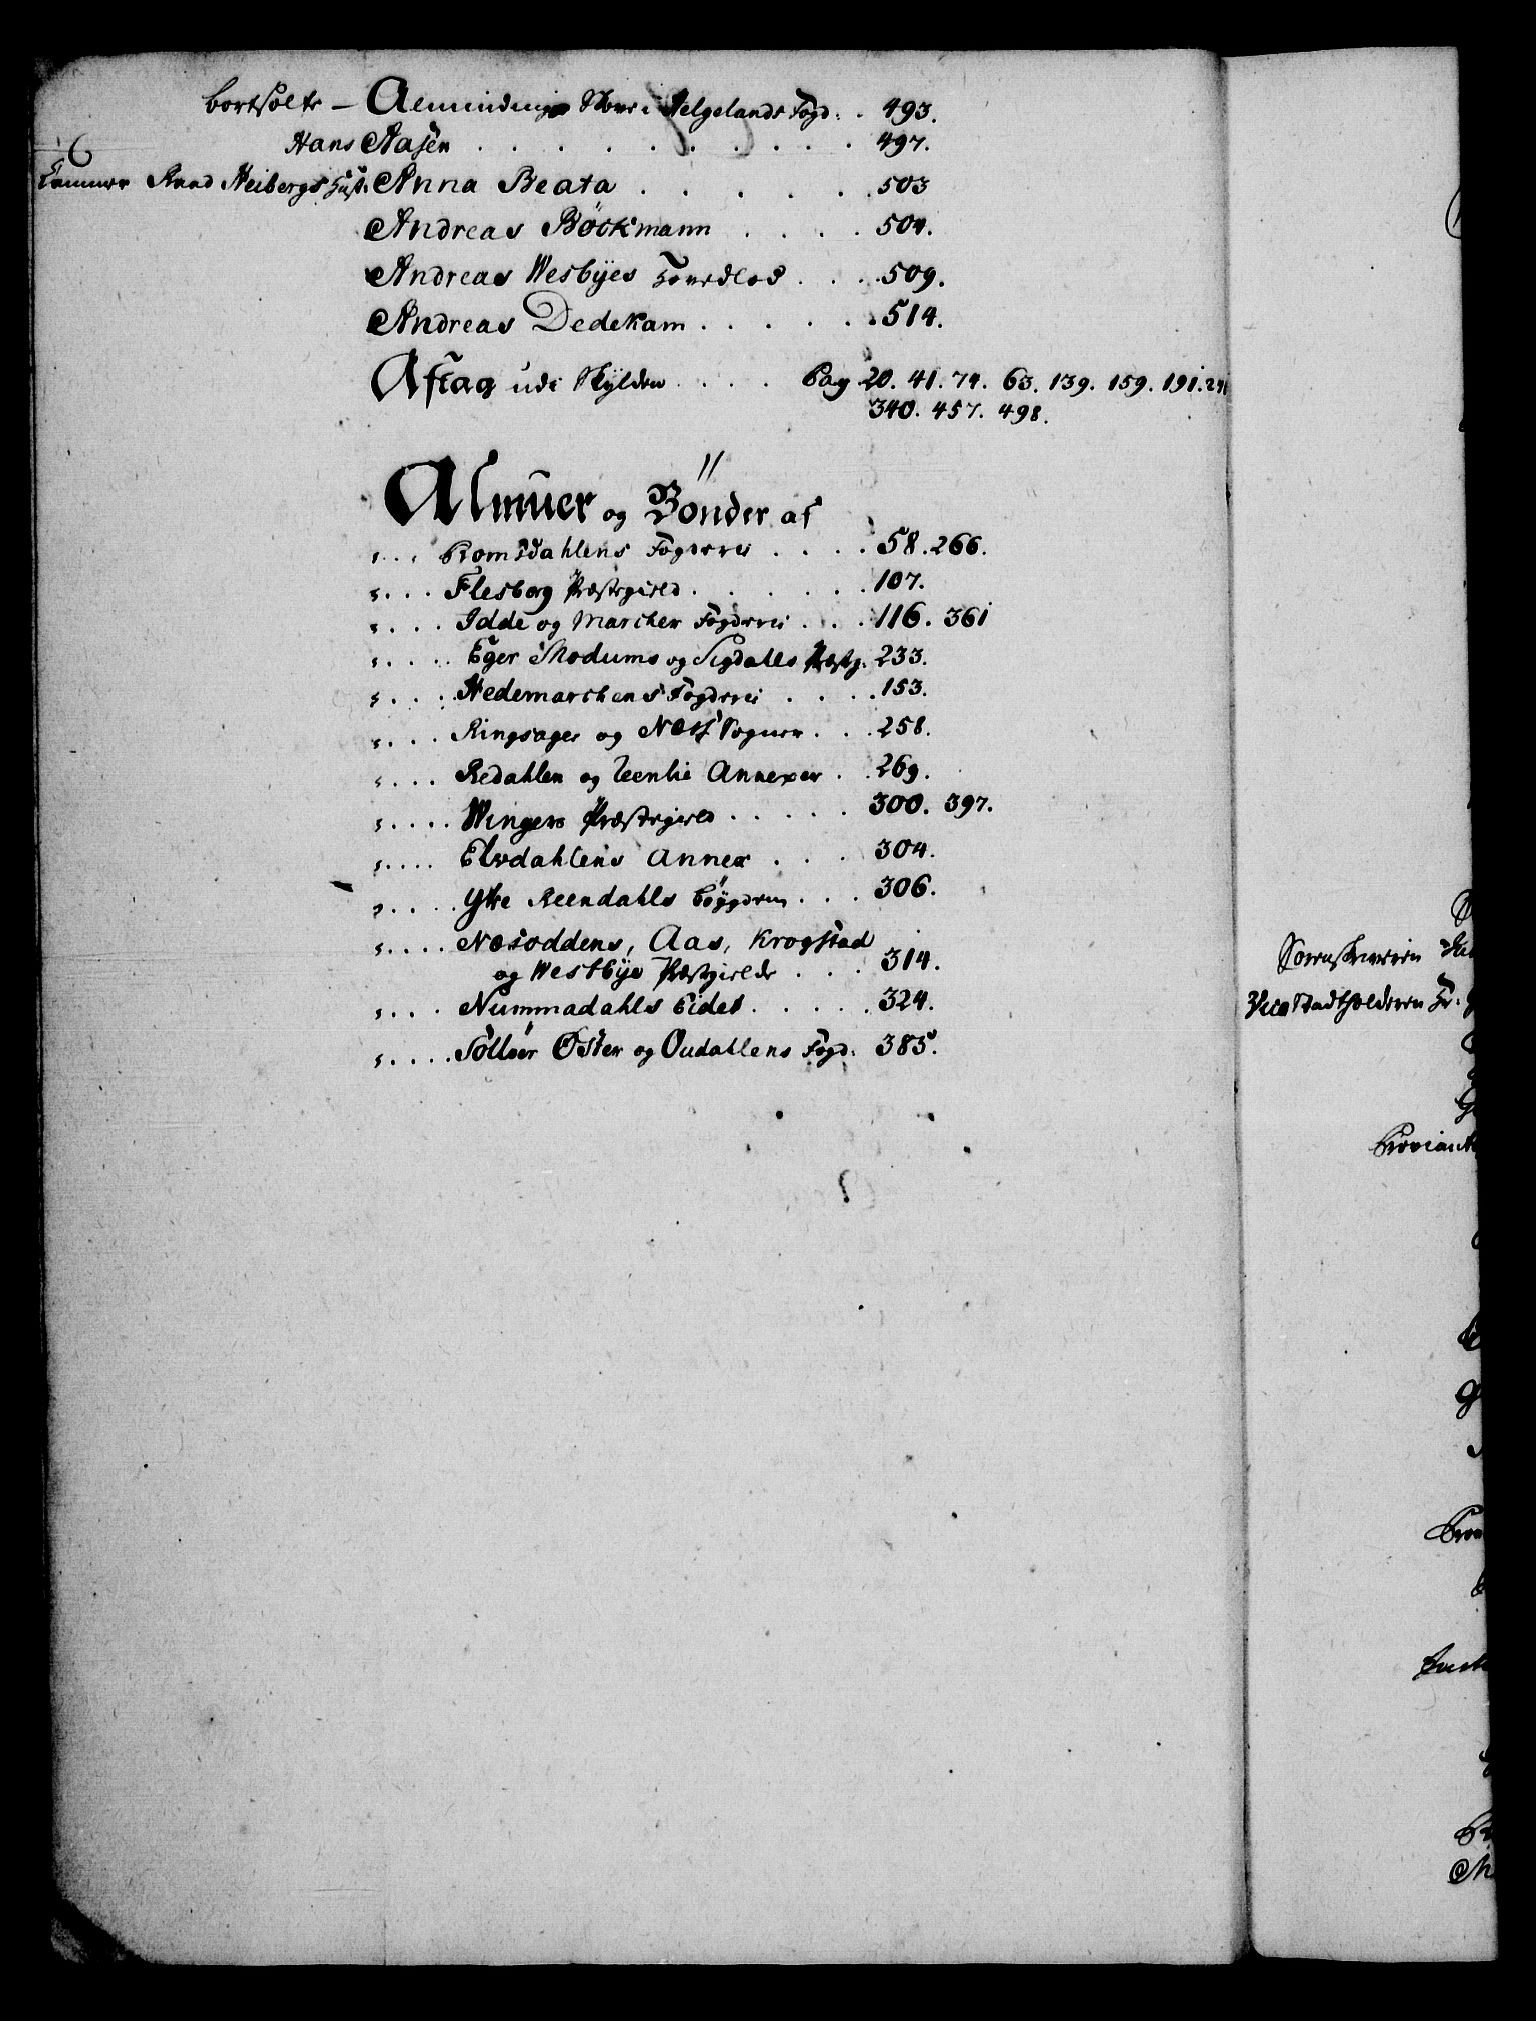 bortsolte – Almindings Skove i Helgelands Fogd: . 493.
Hans Aasen . . . . . . . . . 497.
Kammer Raad Heibergs Hust: Anna Beata . . . . . 503
Andreas Böckmann . . . . 504.
Andreas Wesbÿes Hovedlod . . . 509.
Andreas Dedekam . . . . . 514.
Aftag udi Skylden . . . . Pag 20. 41. 74. 63. 139. 159. 191.
340. 457. 498.
Almuer og Bönder af
Romsdahlens Fogderei . . . . 58. 266.
Flesberg Præstegield . . . . . . 107.
Idde og Marcker Fogderei . . . 116. 361
Eger Modums og Sigdahls Præstg: 233.
Hedemarckens Fogderei . . . . 153.
Ringsager og Næss Sogner . . . 258.
Redahlen og Annexer . . 269.
Wingers Præstegield . . . . . 300. 397.
Elvdahlens Annex . . . 304.
Ytre Reendahls Bøygden . . . 306.
Næsoddens, Aas, Krogstad
og Westbÿe Præstgielde . . . 314.
Nummadahls Eidet . . . . . 324.
Solløer Øster og Oudahlens Fogd: 385.
Sorenskriveren
Vice Stadtholderen Fr:
Proviant